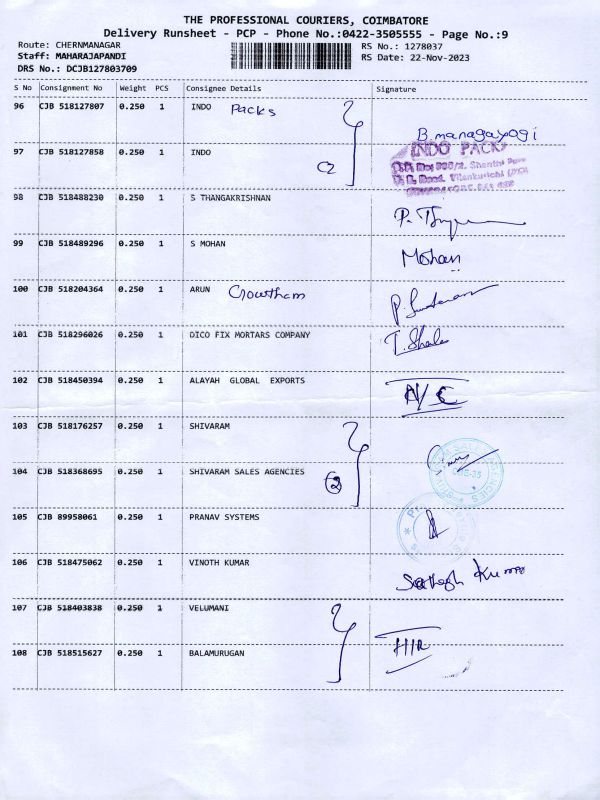 THE PROFESSIONAL COURIERS, COIMBATORE
Delivery Runsheet - PCP - Phone No.:0422-3505555 - Page No.:9
Route: CHERNMANAGAR RS No.: 1278037
Staff: MAHARAJAPANDI RS Date: 22-Nov-2023
DRS No.: DCJB127803709
S No Consignment No Weight PCS Consignee Details Signature
96 CJB 518127807 0.250 1 INDO Packs
B.managayogi
97 CJB 518127858 0.250 1 INDO C2 INDO PACK
98 CJB 518488230 0.250 1 S THANGAKRISHNAN
99 CJB 518489296 0.250 1 S MOHAN Mohan
100 CJB 518204364 0.250 1 ARUN Gowtham
101 CJB 518296026 0.250 1 DICO FIX MORTARS COMPANY
102 CJB 518450394 0.250 1 ALAYAH GLOBAL EXPORTS N/C
103 CJB 518176257 0.250 1 SHIVARAM
104 CJB 518368695 0.250 1 SHIVARAM SALES AGENCIES 2
105 CJB 89958061 0.250 1 PRANAV SYSTEMS
106 CJB 518475062 0.250 1 VINOTH KUMAR
107 CJB 518403838 0.250 1 VELUMANI
108 CJB 518515627 0.250 1 BALAMURUGAN